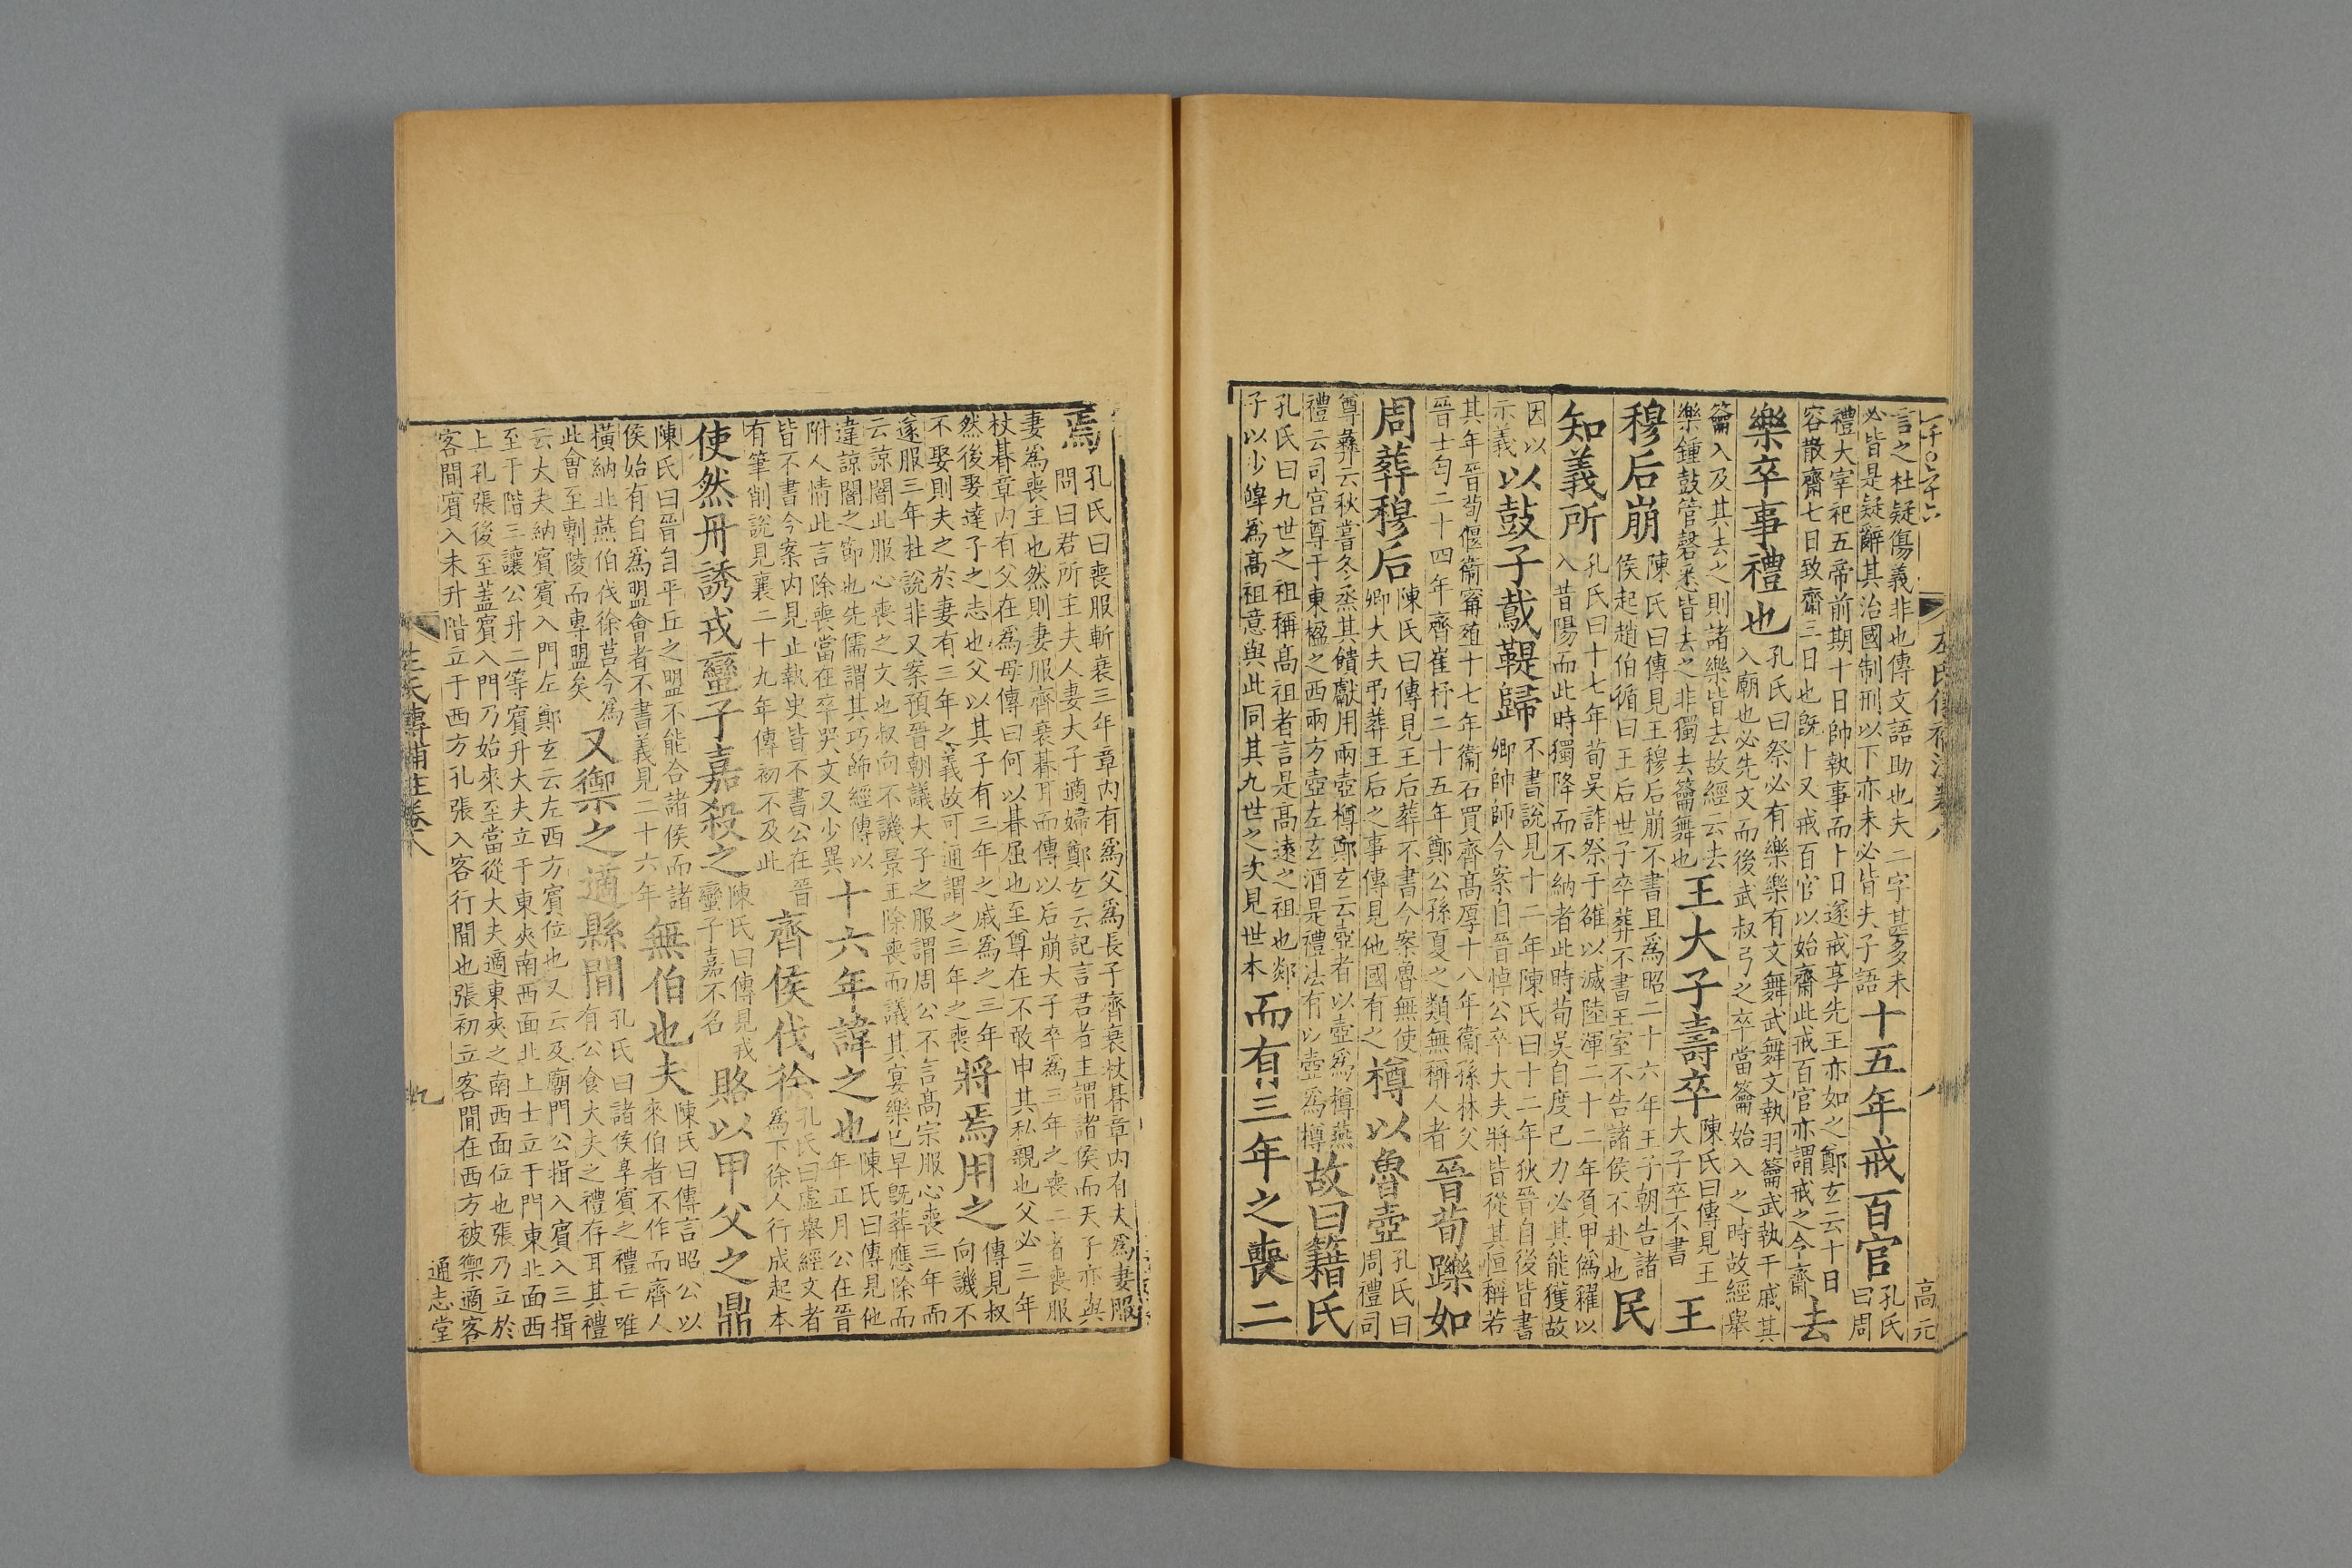 左氏傳補注卷八
八
高元
言之杜疑傷義非也傳文語助也夫二字甚多未
必皆是疑辭其治國制刑以下亦未必皆夫子語
十五年戒百官
孔氏
曰周
禮大宰祀五帝前期十日帥執事而卜日遂戒享先王亦如之鄭玄云十日
容散齋七日致齋三日也旣卜又戒百官以始齋此戒百官亦謂戒之令齋
去
樂卒事禮也
孔氏曰祭必有樂樂有文舞武舞文執羽籥武執干戚其
入廟也必先文而後武叔弓之卒當籥始入之時故經舉
籥入及其去之則諸樂皆去故經云去
樂鍾鼓管磬悉皆去之非獨去籥舞也
王大子壽卒
陳氏曰傳見王
大子卒不書
王
穆后崩
陳氏曰傳見王穆后崩不書且爲昭二十六年王子朝告諸
侯起趙伯循曰王后世子卒葬不書王室不告諸侯不赴也
民
知義所
孔氏曰十七年荀吳詐祭于雒以滅陸渾二十二年負甲僞糴以
入昔陽而此時獨降而不納者此時荀吳自度己力必其能獲故
因以
示義
以鼓子䳒鞮歸
不書說見十二年陳氏曰十二年狄晉自後皆書
卿帥師今案自晉悼公卒大夫將皆從其恒稱若
其年晉荀偃衞甯殖十七年衞石買齊高厚十八年衞孫林父
晉士匄二十四年齊崔杼二十五年鄭公孫夏之類無稱人者
晉荀躒如
周葬穆后
陳氏曰傳見王后葬不書今案魯無使
卿大夫弔葬王后之事傳見他國有之
樽以魯壺
孔氏曰
周禮司
尊彝云秋嘗冬烝其饋獻用兩壺樽鄭玄云壺者以壺爲樽燕
禮云司宫尊于東楹之西兩方壺左玄酒是禮法有以壺爲樽
故曰籍氏
孔氏曰九世之祖稱高祖者言是高遠之祖也郯
子以少皥爲高祖意與此同其九世之次見世本
而有三年之喪二
焉
孔氏曰喪服斬衰三年章內有爲父爲長子齊衰杖朞章内有夫爲妻服
問曰君所主夫人妻大子適婦鄭玄云記言君者主謂諸侯而天子亦與
妻爲喪主也然則妻服齊衰朞耳而傳以后崩大子卒爲三年之喪二者喪服
杖朞章内有父在爲母傳曰何以朞屈也至尊在不敢申其私親也父必三年
然後娶達子之志也父以其子有三年之戚爲之三年
不娶則夫之於妻有三年之義故可通謂之三年之喪
將焉用之
傳見叔
向譏不
遂服三年杜說非又案預晉朝議大子之服謂周公不言高宗服心喪三年而
云諒闇此服心喪之文也叔向不譏景王除喪而議其宴樂已早旣葬應除而
違諒闇之節也先儒謂其巧飾經傳以
附人情此言除喪當在卒哭文又少異
十六年諱之也
陳氏曰傳見他
年正月公在晉
皆不書今案内見止執史皆不書公在晉
有筆削說見襄二十九年傳初不及此
齊侯伐徐
孔氏曰虛舉經文者
爲下徐人行成起本
使然丹誘戎蠻子嘉殺之
陳氏曰傳見戎
蠻子嘉不名
賂以甲父之鼎
陳氏曰晉自平丘之盟不能合諸侯而諸
侯始有自爲盟會者不書義見二十六年
無伯也夫
陳氏曰傳言昭公以
來伯者不作而齊人
橫納北燕伯伐徐莒今爲
此會至剸陵而專盟矣
又禦之適縣間
孔氏曰諸侯享賓之禮亡唯
有公食大夫之禮存耳其禮
云大夫納賓賓入門左鄭玄云左西方賓位也又云及廟門公揖入賓入三揖
至于階三讓公升二等賓升大夫立于東夾南西面北上士立于門東北面西
上孔張後至蓋賓入門乃始來至當從大夫適東夾之南西面位也張乃立於
客間賓入未升階立于西方孔張入客行間也張初立客間在西方被禦適客
左氏傳補注卷八
九
通志堂